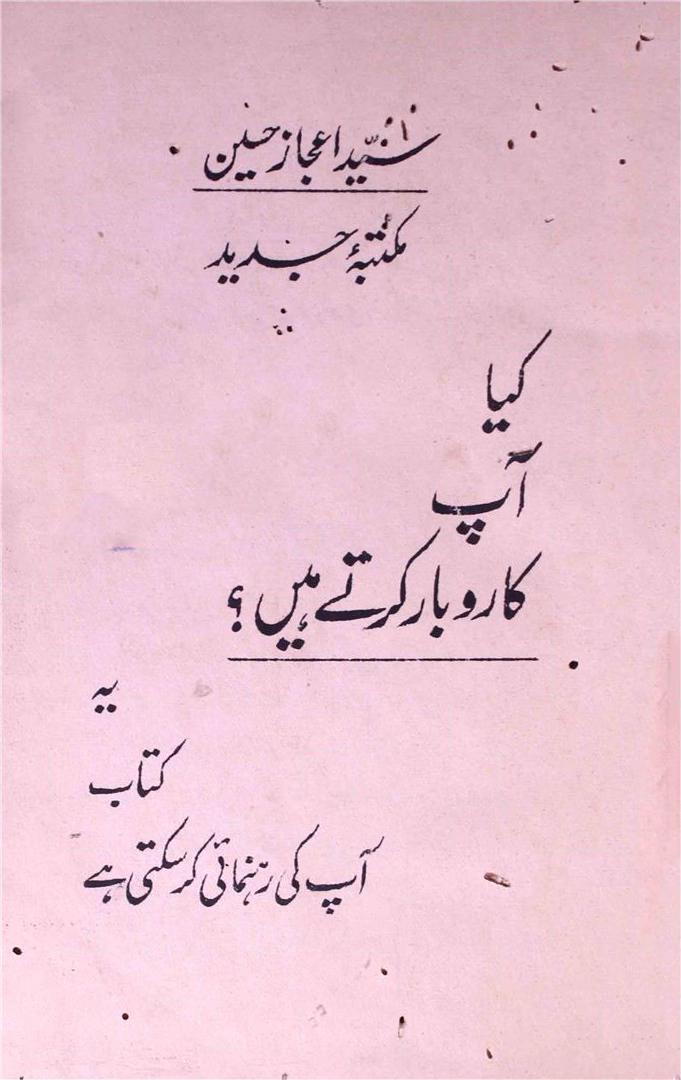 سیّد اعجاز حسین
مکتبۂ جدید
کیا
آپ
کاروبار کرتے ہیں؟
یہ
کتاب
آپ کی رہنمائی کر سکتی ہے